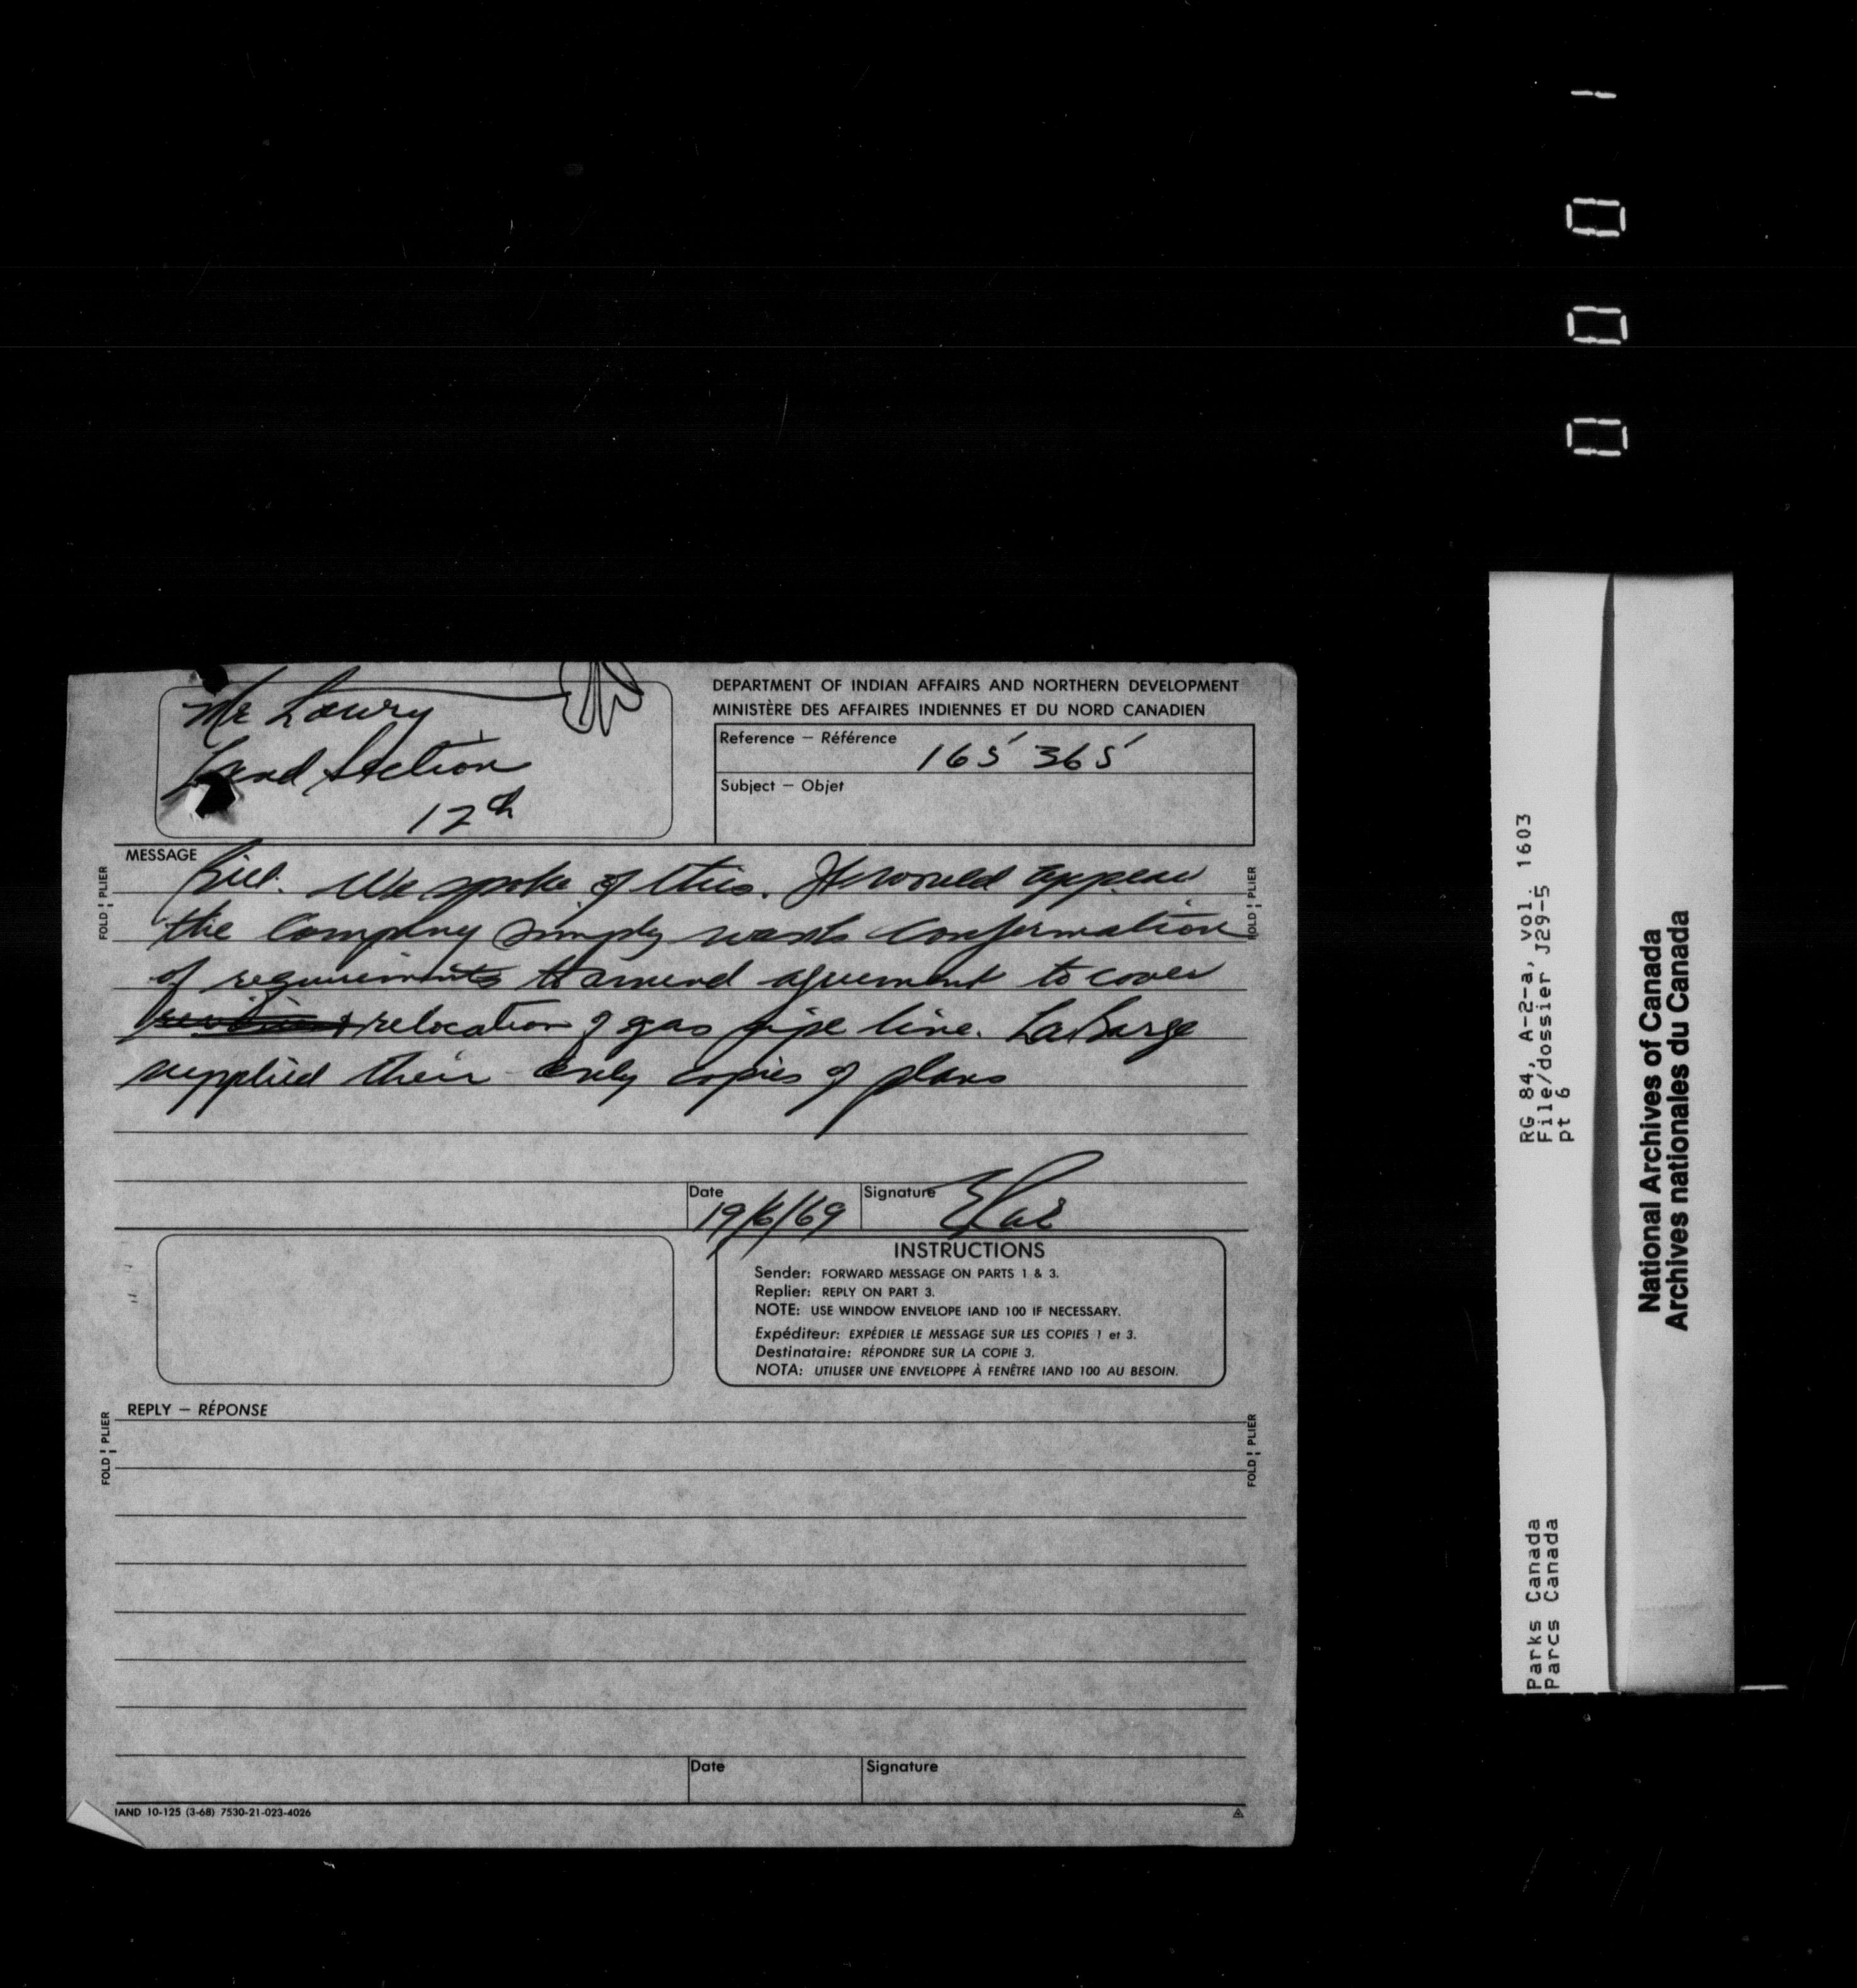 Mr Lowry
Land Section
12th
DEPARTMENT OF INDIAN AFFAIRS AND NORTHERN DEVELOPMENT
MINISTÈRE DES AFFAIRES INDIENNES ET DU NORD CANADIEN
Reference — Référence 165 365
Subject — Objet
MESSAGE
FOLD PLIER
FOLD PLIER
Bill. We spoke of this. It would appear
the Company simply wants confirmation
of requirements to amend agreement to cover
relocation of gas pipe line. LaBarge
supplied their only copies of plans
Date 19/6/69
Signature
INSTRUCTIONS
Sender: FORWARD MESSAGE ON PARTS 1 & 3.
Replier: REPLY ON PART 3.
NOTE: USE WINDOW ENVELOPE IAND 100 IF NECESSARY.
Expéditeur: EXPÉDIER LE MESSAGE SUR LES COPIES 1 et 3.
Destinataire: RÉPONDRE SUR LA COPIE 3.
NOTA: UTILISER UNE ENVELOPPE À FENÊTRE IAND 100 AU BESOIN.
REPLY — RÉPONSE
FOLD PLIER
FOLD PLIER
Date
Signature
IAND 10-125 (3-68) 7530-21-023-4026
1000
RG 84, A-2-a, vol. 1603
File/dossier J29-5
pt 6
Parks Canada
Parcs Canada
National Archives of Canada
Archives nationales du Canada